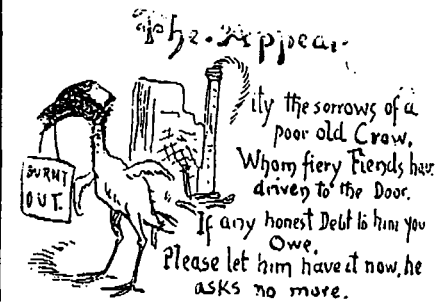 The Appeal
Pity the sorrows of a
poor old Crow,
Whom fiery Fiends have
driven to the Door.
If any honest Debt to him you
Owe,
Please let him have it now, he
asks no more.
BURNT
OUT.